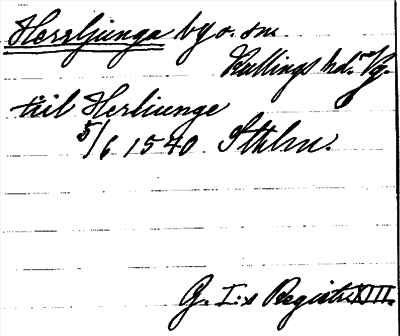 Herrljunga by o. sn
Kullings hd. Vg.
till Herliunge
5/6 1540 Sthlm.
G. I:s Registr. XIII.